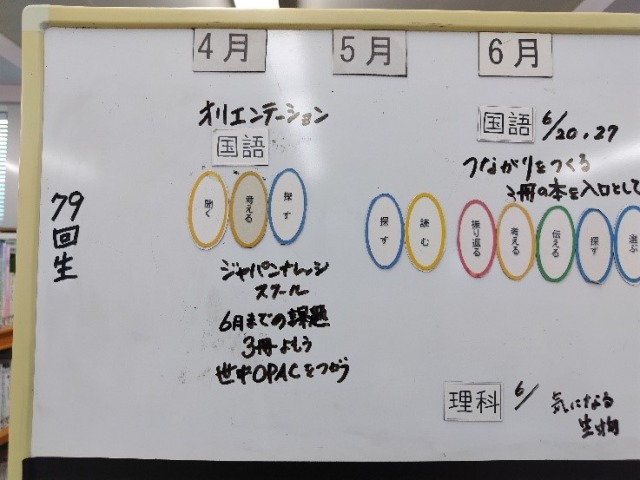 4月
5月
6月
オリエンテーション
国語
聞く
考える
探す
ジャパンナレッジ
スクール
6月までの課題
3冊よもう
OPACをつかう
79回生
探す
読む
国語 6/20,27
つながりをつくる
3冊の本を入口として
振り返る
考える
伝える
探す
選ぶ
理科 6/
気になる
生物